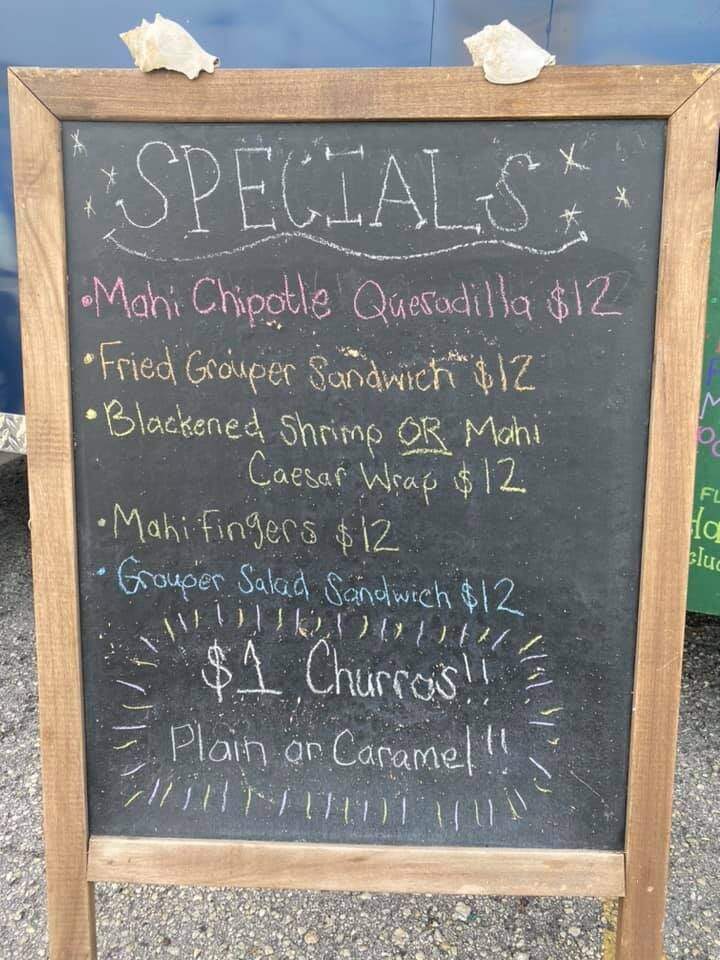 SPECIALS
•Mahi Chipotle Quesadilla $12
•Fried Grouper Sandwich $12
•Blackened Shrimp OR Mahi
Caesar Wrap $12
•Mahi Fingers $12
•Grouper Salad Sandwich $12
$1 Churros!!
Plain or Caramel!!